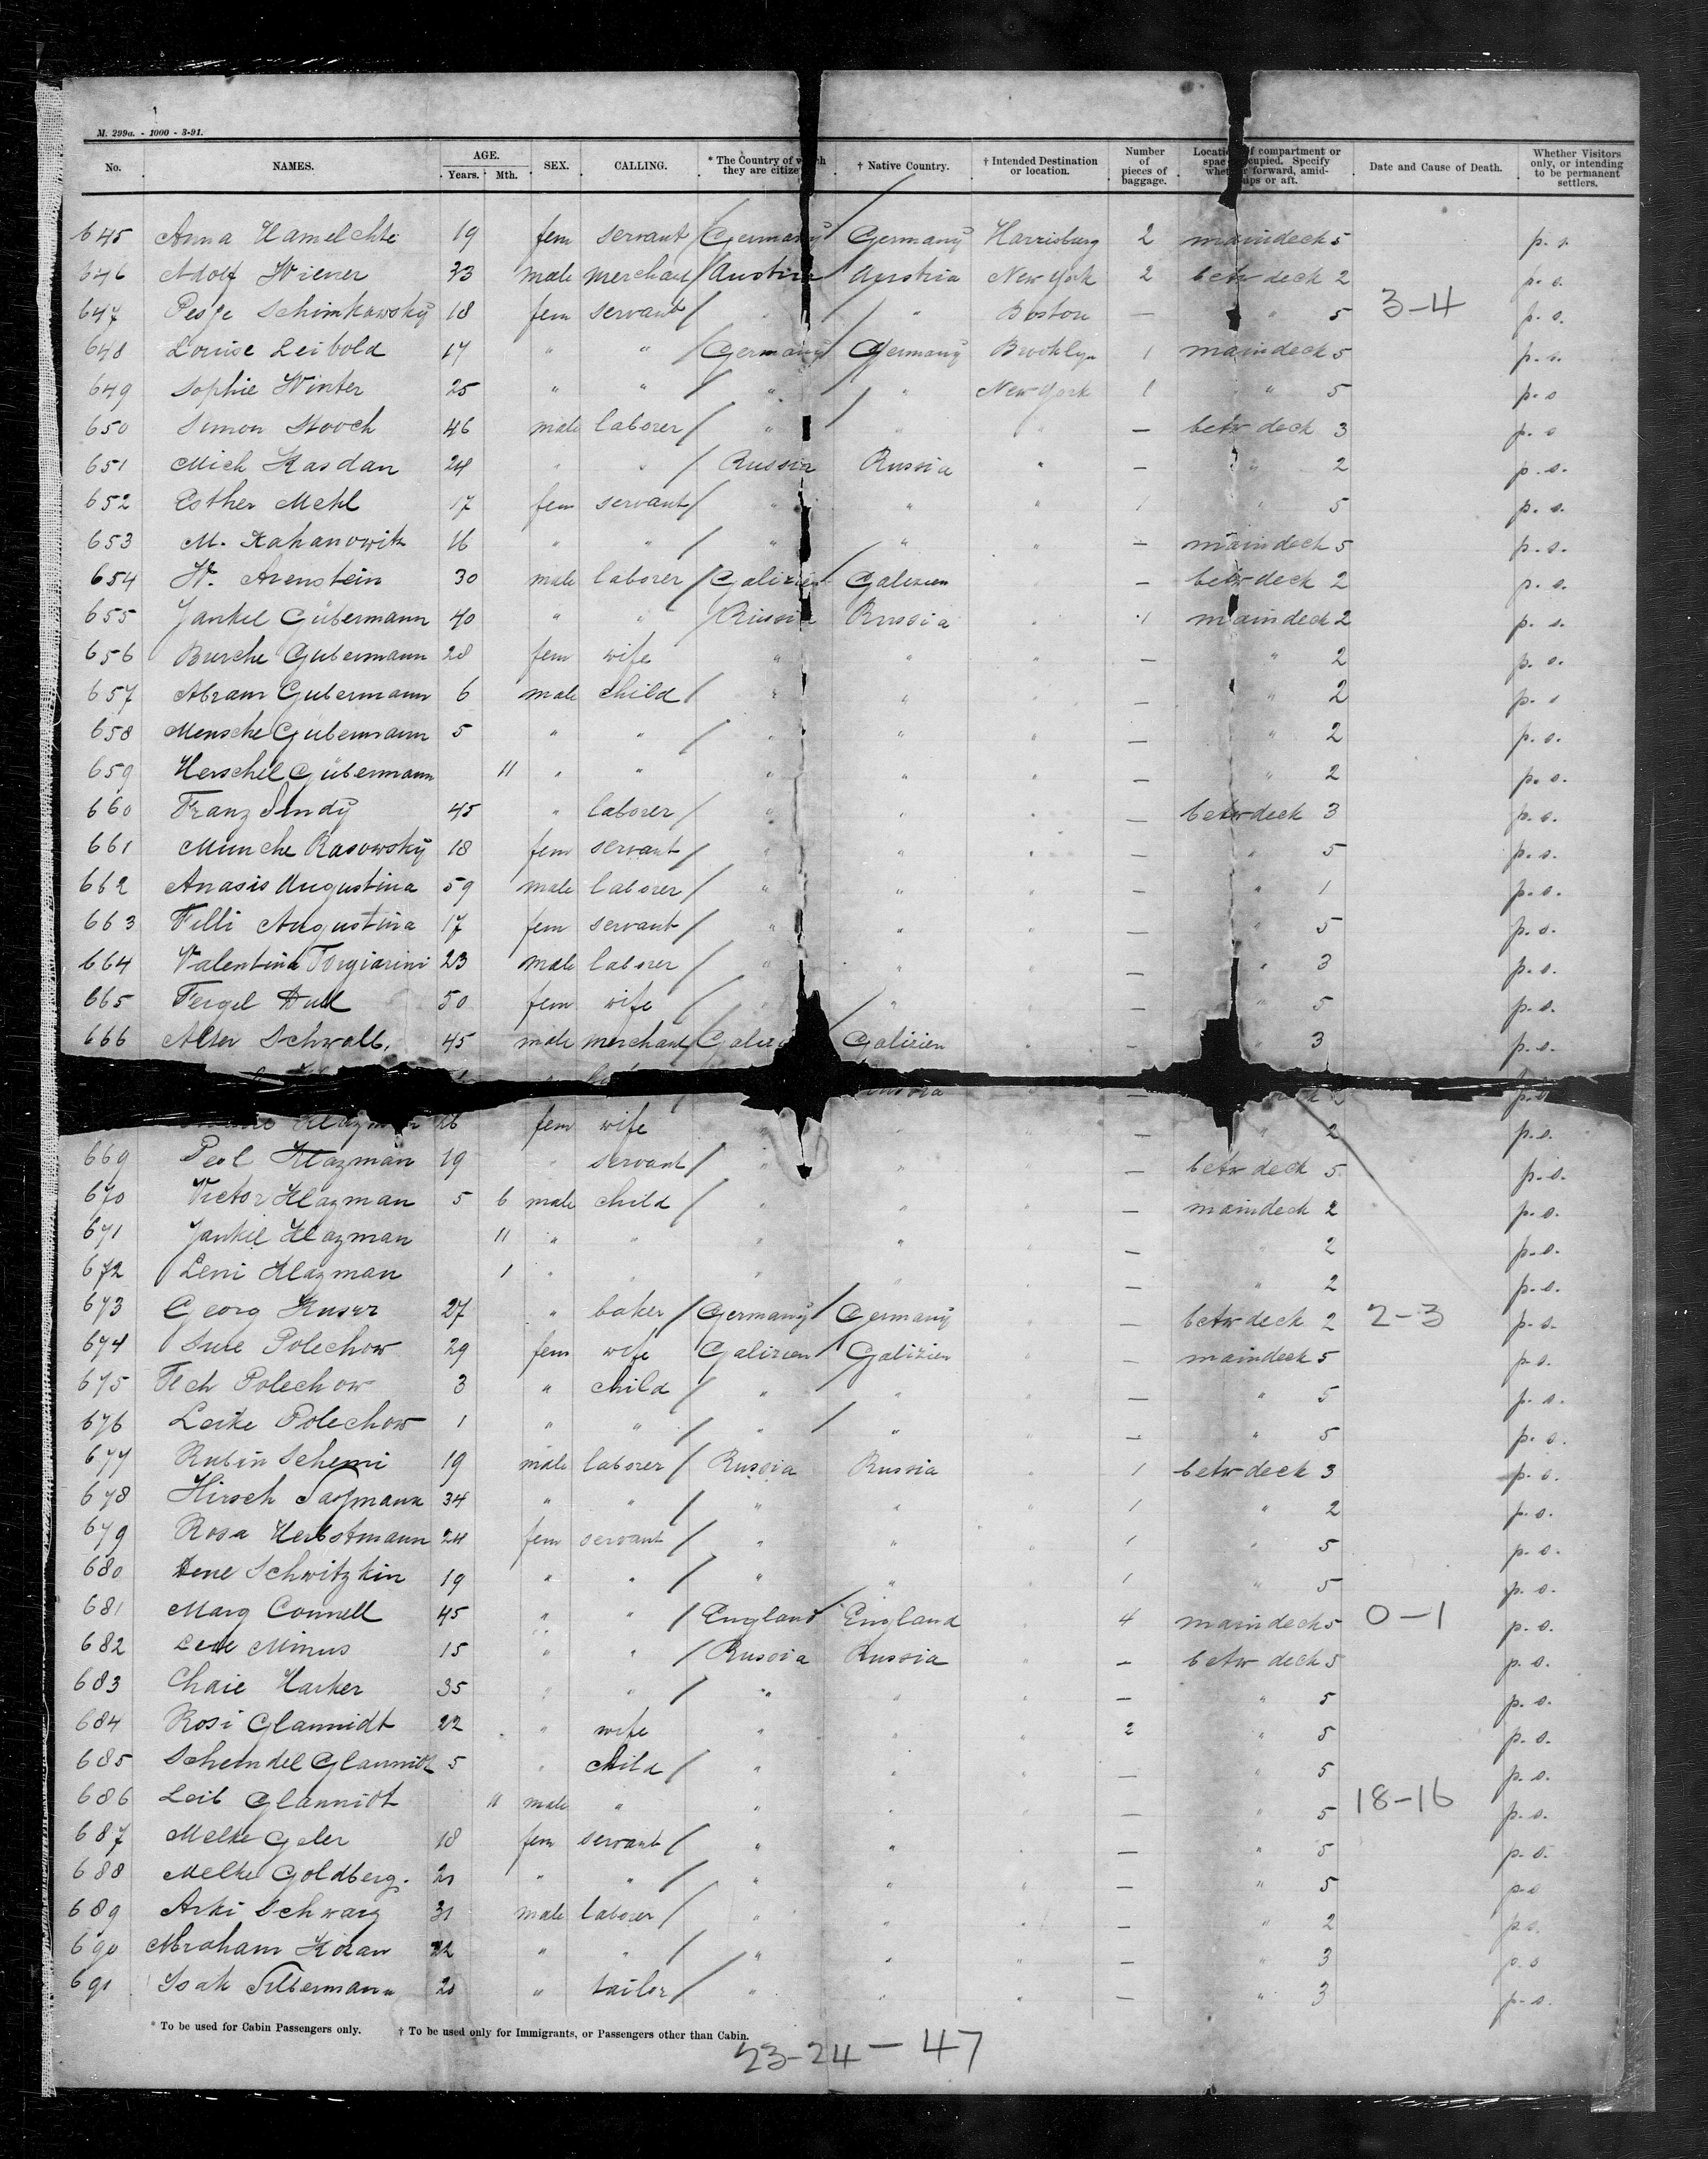 M. 299a. - 1000 - 3-91.
No. NAMES. AGE. Years. Mth. SEX. CALLING. * The Country of which they are citizens † Native Country. † Intended Destination or location. Number of pieces of baggage. Location of compartment or space occupied. Specify whether forward, amidships or aft. Date and Cause of Death. Whether Visitors only, or intending to be permanent settlers.
645 Anna 19 fem servant Germany Germany Harrisburg 2 maindeck 5 p. s.
646 Adolf Wiener 33 male merchant Austria Austria New York 2 betw deck 2 p. s.
647 Pesje Schimkowsky 18 fem servant " " Boston — " 5 3-4 p. s.
648 Louise Leibold 17 " " Germany Germany Brooklyn 1 maindeck 5 p. s.
649 Sophie Winter 25 " " " " New York 1 " 5 p. s
650 Simon 46 male laborer " " " — betw deck 3 p. s
651 Mich Kasdan 24 " " Russia Russia " — " 2 p. s.
652 Esther Mehl 17 fem servant " " " 1 " 5 p. s.
653 M. Kahanowitz 16 " " " " " — maindeck 5 p. s.
654 W. Arenstein 30 male laborer Galizien Galizien " — betw deck 2 p. s.
655 Jankel Gübermann 40 " " Russia Russia " 1 maindeck 2 p. s.
656 Bursche Gubermann 28 fem wife " " " — " 2 p. s.
657 Abram Gubermann 6 male child " " " — " 2 p. s
658 Mensche Gübermann 5 " " " " " — " 2 p. s.
659 Herschel Gübermann 11 " " " " " — " 2 p. s.
660 Franz 45 " laborer " " " — betw deck 3 p. s.
661 Munche Rasowsky 18 fem servant " " " — " 5 p. s.
662 Anasis Augustina 59 male laborer " " " — " 1 p. s.
663 Filli Augustina 17 fem servant " " " — " 5 p. s.
664 Valentina Torgiarini 23 male laborer " " " — " 3 p. s.
665 Feigel 50 fem wife " " " — " 5 p. s.
666 Alter Schwalb. 45 male merchant Galizien Galizien " — " 3 p. s.
— p. s.
Klazman 26 fem wife " " — " 2 p. s.
669 Perl Klazman 19 " servant " " — betw deck 5 p. s.
670 Victor Klazman 5 6 male child " " " — maindeck 2 p. s.
671 Jankel Klazman 11 " " " " — " 2 p. s.
672 Leni Klazman 1 " " " " — " 2 p. s.
673 Georg 27 " baker Germany Germany " — betw deck 2 2-3 p. s.
674 Sure Polechow 29 fem wife Galizien Galizien " — maindeck 5 p. s.
675 Polechow 3 " child " " " — " 5 p. s.
676 Leike Polechow 1 " " " " " — " 5 p. s.
677 Rubin Schemi 19 male laborer Russia Russia " 1 betw deck 3 p. s.
678 Hirsch 34 " " " " " 1 " 2 p. s.
679 Rosa Herbstmann 24 fem servant " " " 1 " 5 p. s.
680 Schwitzkin 19 " " " " " 1 " 5 p. s.
681 Marg Connell 45 " " England England " 4 maindeck 5 0-1 p. s.
682 Minus 15 " " Russia Russia " — betw deck 5 p. s.
683 Chaie Harker 35 " " " " " — " 5 p. s.
684 Rosi Glannidt 22 " wife " " " 2 " 5 p. s.
685 Scheindel Glannidt 5 " child " " " — " 5 p. s.
686 Leib Glannidt 11 male " " " " — " 5 18-16 p. s.
687 Melke Geler 18 fem servant " " " — " 5 p. s.
688 Melke Goldberg. 21 " " " " " — " 5 p. s
689 Arki Schwarz 31 male laborer " " " — " 2 p. s.
690 Abraham 22 " " " " " — " 3 p. s
691 Isak Silbermann 20 " tailor " " " — " 3 p. s.
* To be used for Cabin Passengers only. † To be used only for Immigrants, or Passengers other than Cabin.
23-24-47